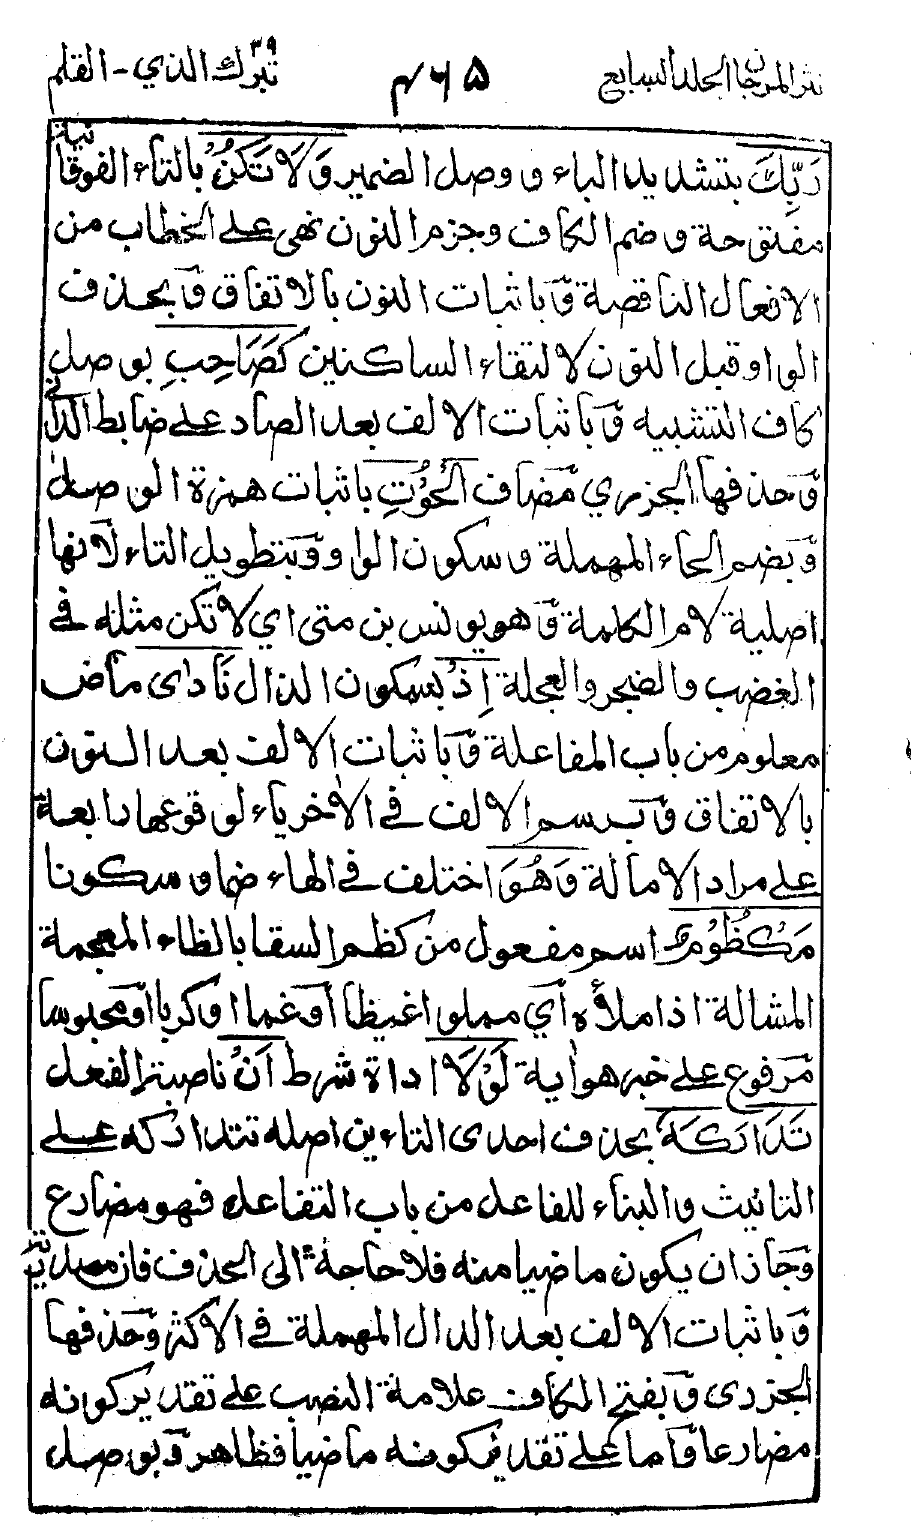 نثر المرجان الجلد السابع ۴۶۵ تبٰرك الذي ۲۹ - القلم
رَبِّكَ بتشديد الباء و وصل الضمير وَلَا تَكُنْ بالتاء الفوقانية
مفتوحة وضم الكاف وجزم النون نهي على الخطاب من
الافعال الناقصة وباثبات النون بالاتفاق وبحذف
الواو قبل النون لالتقاء الساكنين كَصَاحِبِ بوصل
كاف التشبيه وباثبات الالف بعد الصاد على ضابط الداني
وحذفها الجزري مضاف الْحُوْتِ باثبات همزة الوصل
وبضم الحاء المهملة وسكون الواو وبتطويل التاء لانها
اصلية لام الكلمة وهو يونس بن متى اي لا تكن مثله في
الغضب والضجر والعجلة اِذْ بسكون الذال نَادٰى ماض
معلوم من باب المفاعلة وباثبات الالف بعد النون
بالاتفاق وبرسم الالف في الاخر ياء لوقوعها رابعة
على مراد الامالة وَهُوَ اختلف في الهاء ضما وسكونا
مَكْظُوْمٌ اسم مفعول من كظم السقا بالظاء المعجمة
المشالة اذا ملأه أي مملوا غيظا أو غما او كربا او محبوسا
مرفوع على خبر هو اية لَوْلَا اداة شرط اَنْ ناصبة الفعل
تَدَارَكَهٗ بحذف احدى التاءين اصله تتداركه على
التانيث والبناء للفاعل من باب التفاعل فهو مضارع
وجاز ان يكون ماضيا منه فلا حاجة الى الحذف فان
وباثبات الالف بعد الدال المهملة في الاكثر وحذفها
الجزري وبفتح الكاف علامة النصب على تقدير كونه
مضارعا واما على تقدير كونه ماضيا فظاهر وبوصل